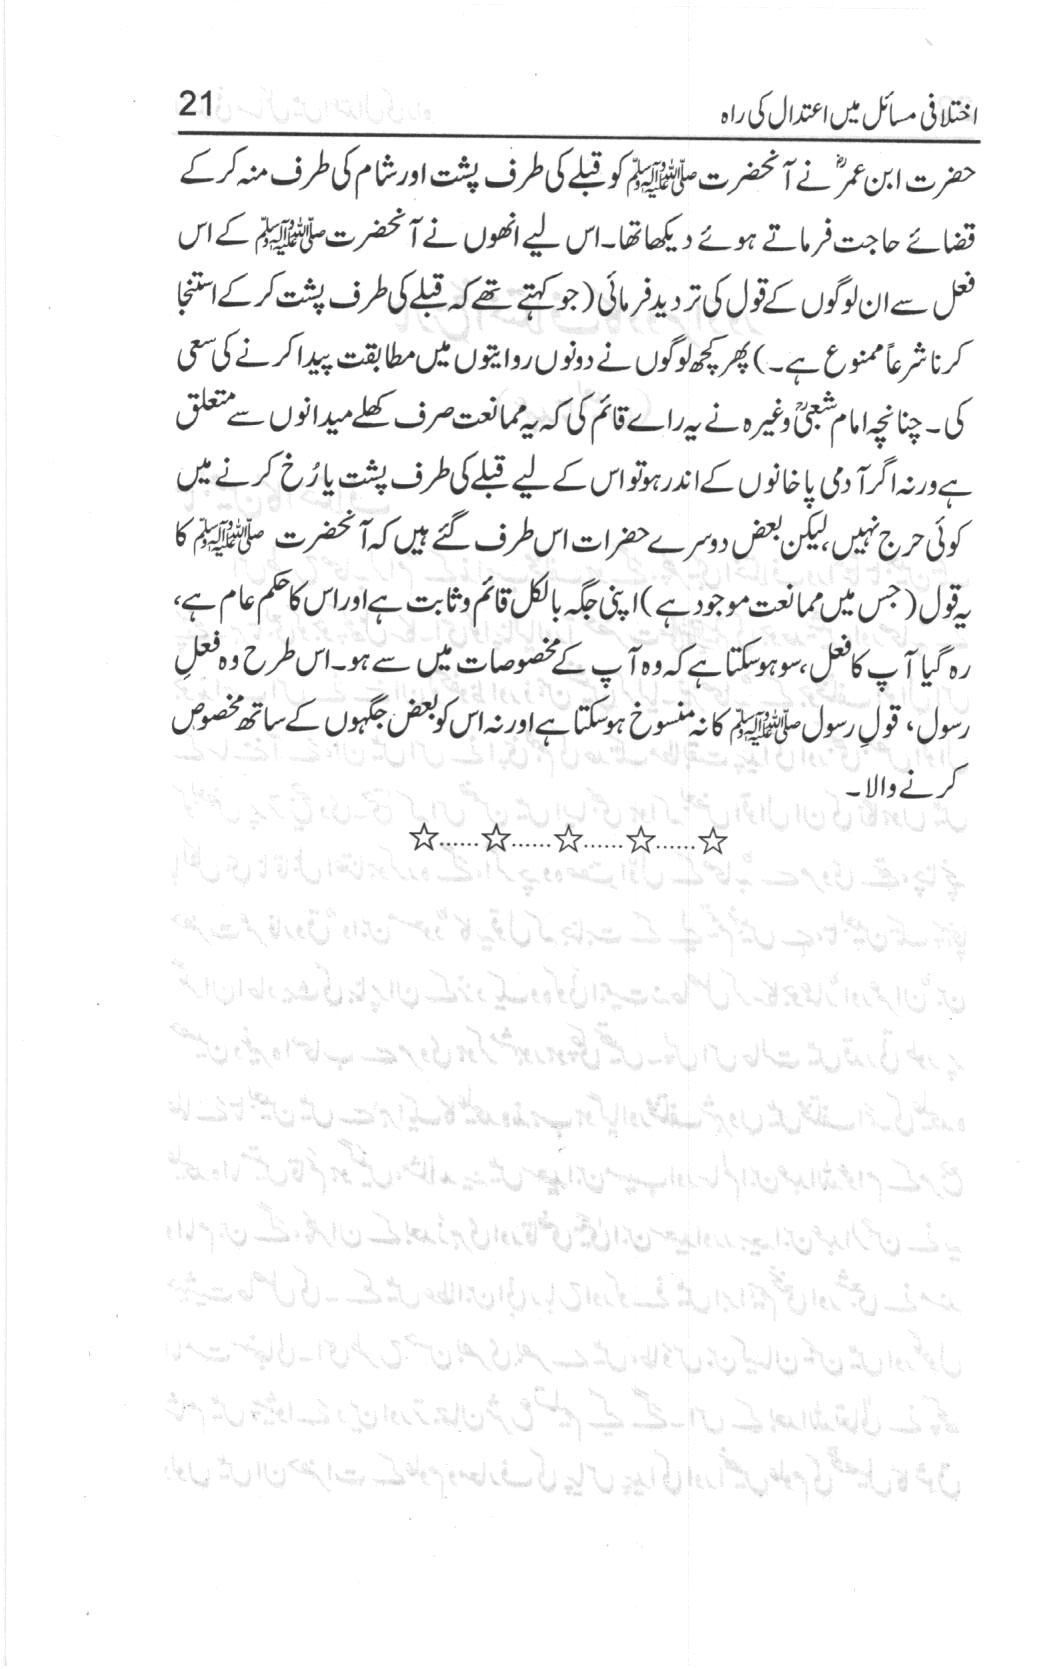 اختلافی مسائل میں اعتدال کی راہ 21
حضرت ابن عمرؓ نے آنحضرت ﷺ کو قبلے کی طرف پشت اور شام کی طرف منہ کر کے
قضائے حاجت فرماتے ہوئے دیکھا تھا۔ اس لیے انھوں نے آنحضرت ﷺ کے اس
فعل سے ان لوگوں کے قول کی تردید فرمائی (جو کہتے تھے کہ قبلے کی طرف پشت کر کے استنجا
کرنا شرعاً ممنوع ہے۔) پھر کچھ لوگوں نے دونوں روایتوں میں مطابقت پیدا کرنے کی سعی
کی۔ چنانچہ امام شعبیؒ وغیرہ نے یہ راے قائم کی کہ یہ ممانعت صرف کھلے میدانوں سے متعلق
ہے ورنہ اگر آدمی پاخانوں کے اندر ہو تو اس کے لیے قبلے کی طرف پشت یا رُخ کرنے میں
کوئی حرج نہیں، لیکن بعض دوسرے حضرات اس طرف گئے ہیں کہ آنحضرت ﷺ کا
یہ قول (جس میں ممانعت موجود ہے) اپنی جگہ بالکل قائم و ثابت ہے اور اس کا حکم عام ہے،
رہ گیا آپ کا فعل، سو ہو سکتا ہے کہ وہ آپ کے مخصوصات میں سے ہو۔ اس طرح وہ فعلِ
رسول، قولِ رسول ﷺ کا نہ منسوخ ہو سکتا ہے اور نہ اس کو بعض جگہوں کے ساتھ مخصوص
کرنے والا۔
☆......☆......☆......☆......☆